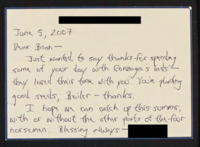 June 5, 2007
Dear Brian –
Just wanted to say thanks for spending
some of your day with Gonzaga's lads –
they loved their time with you. You're planting
good seeds, – thanks.
I hope we can catch up this summer,
with or without the other parts of the four
horsemen. Blessing always –